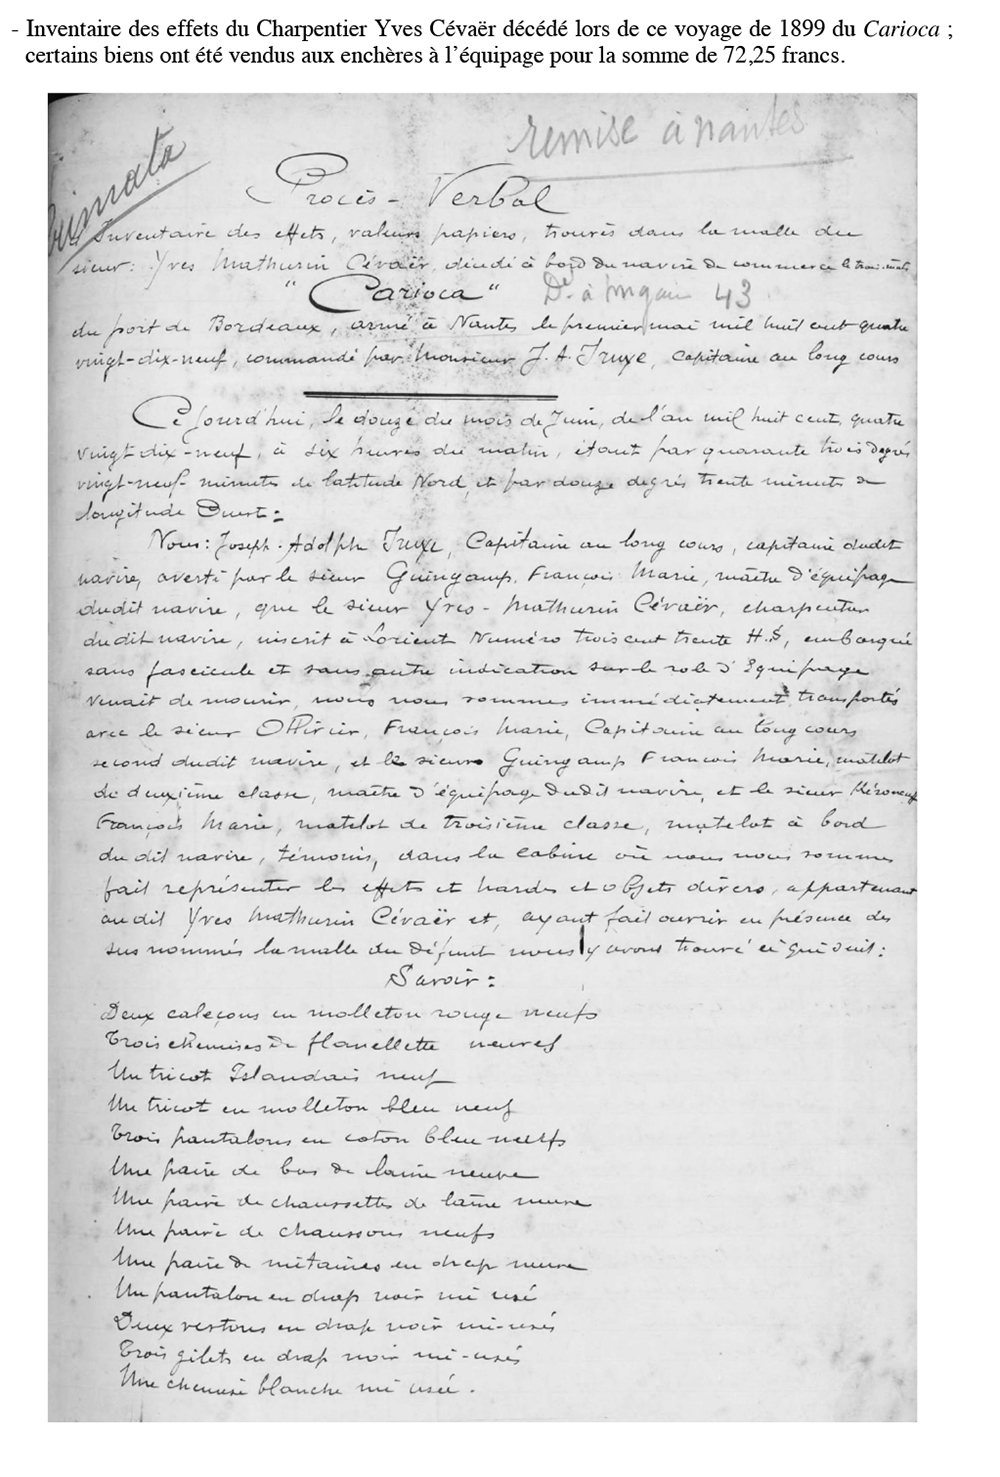 - Inventaire des effets du Charpentier Yves Cévaër décédé lors de ce voyage de 1899 du Carioca ;
certains biens ont été vendus aux enchères à l'équipage pour la somme de 72,25 francs.
remise à nantes
Procès - Verbal
Inventaire des effets, valeurs papiers, trouvés dans la malle du
sieur : Yves Mathurin Cévaër, décédé à bord du navire de commerce le trois-mâts
"Carioca" 43
du port de Bordeaux, armé à Nantes le premier mai mil huit cent quatre
vingt-dix-neuf, commandé par Monsieur J. A. Truxe, capitaine au long cours
Ce jourd'hui, le douze du mois de Juin, de l'an mil huit cent, quatre
vingt-dix-neuf, à six heures du matin, étant par quarante trois degrés
vingt-neuf minutes de latitude Nord, et par douze degrés trente minutes de
longitude Ouest :
Nous : Joseph - Adolphe Truxe, Capitaine au long cours, capitaine dudit
navire, averti par le sieur Guingamp, François Marie, maître d'équipage
dudit navire, que le sieur Yves - Mathurin Cévaër, charpentier
du dit navire, inscrit à Lorient Numéro trois cent trente H.S, embarqué
sans fascicule et sans autre indication sur le role d'équipage
venait de mourir, nous nous sommes immédiatement transportés
avec le sieur Ollivier, François Marie, Capitaine au long cours
second dudit navire, et le sieur Guingamp François Marie, matelot
de deuxième classe, maître d'équipage dudit navire, et le sieur
François Marie, matelot de troisième classe, matelot à bord
du dit navire, témoins, dans la cabine où nous nous sommes
fait représenter les effets et hardes et objets divers, appartenant
au dit Yves Mathurin Cévaër et, ayant fait ouvrir en présence des
sus nommés la malle du défunt nous y avons trouvé ce qui suit :
Savoir :
Deux caleçons en molleton rouge neufs
Trois chemises de flanellette neuves
Un tricot Islandais neuf
Un tricot en molleton bleu neuf
Trois pantalons en coton bleu neufs
Une paire de bas de laine neuve
Une paire de chaussettes de laine neuve
Une paire de chaussons neufs
Une paire de mitaines en drap neuve
Un pantalon en drap noir mi usé
Deux vestons en drap noir mi-usés
Trois gilets en drap noir mi-usés
Une chemise blanche mi usée.